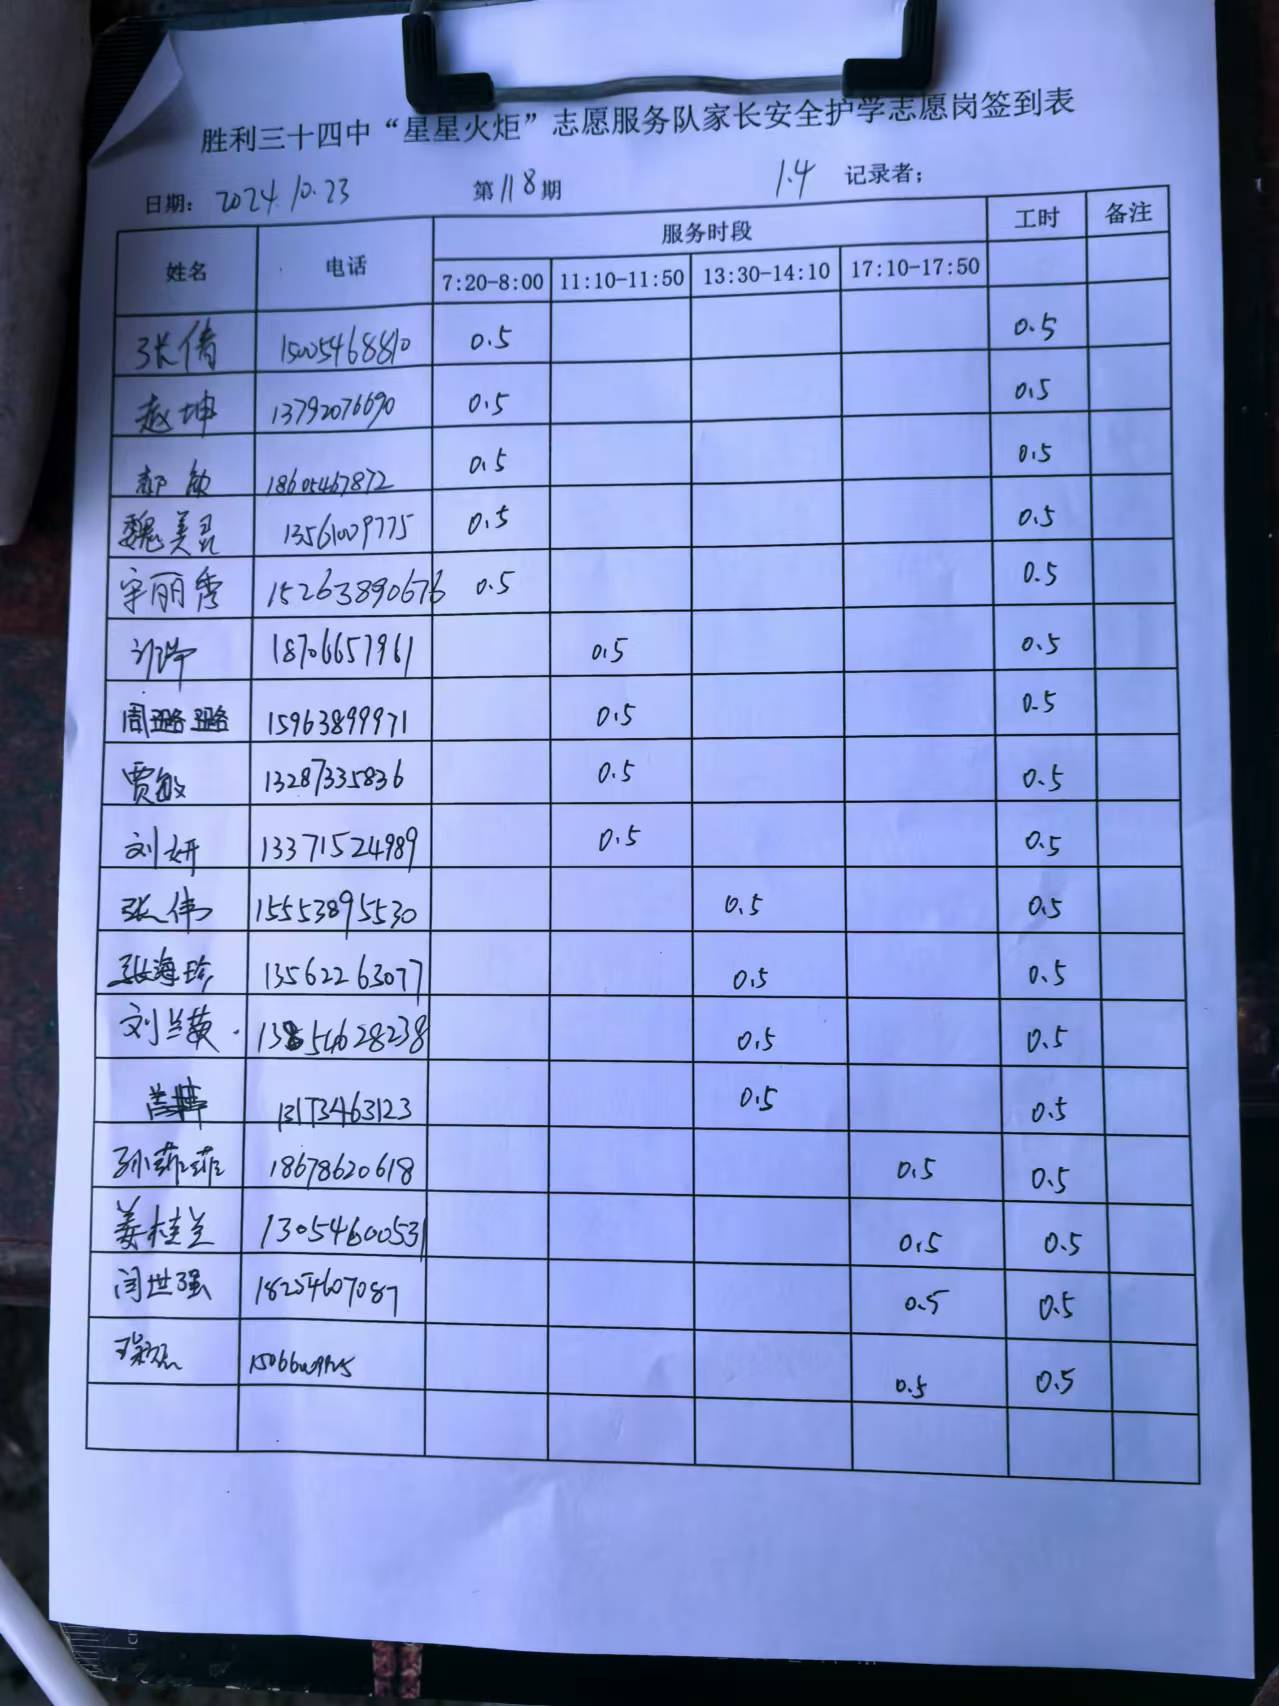 胜利三十四中“星星火炬”志愿服务队家长安全护学志愿岗签到表
日期: 2024.10.23 第118期 1.4 记录者;
姓名 电话 服务时段 工时 备注
7:20-8:00 11:10-11:50 13:30-14:10 17:10-17:50
张倩 15005468810 0.5 0.5
赵坤 13792076690 0.5 0.5
郝敏 18605467872 0.5 0.5
魏美灵 13561009775 0.5 0.5
宋丽秀 15263890676 0.5 0.5
18706657961 0.5 0.5
周璐璐 15963899971 0.5 0.5
贾敏 13287335836 0.5 0.5
刘妍 13371524989 0.5 0.5
张伟 15553895530 0.5 0.5
张海玲 13562263077 0.5 0.5
刘兰英 13854628238 0.5 0.5
13173463123 0.5 0.5
孙菲菲 18678620618 0.5 0.5
姜桂兰 13054600531 0.5 0.5
闫世强 18254607087 0.5 0.5
0.5 0.5